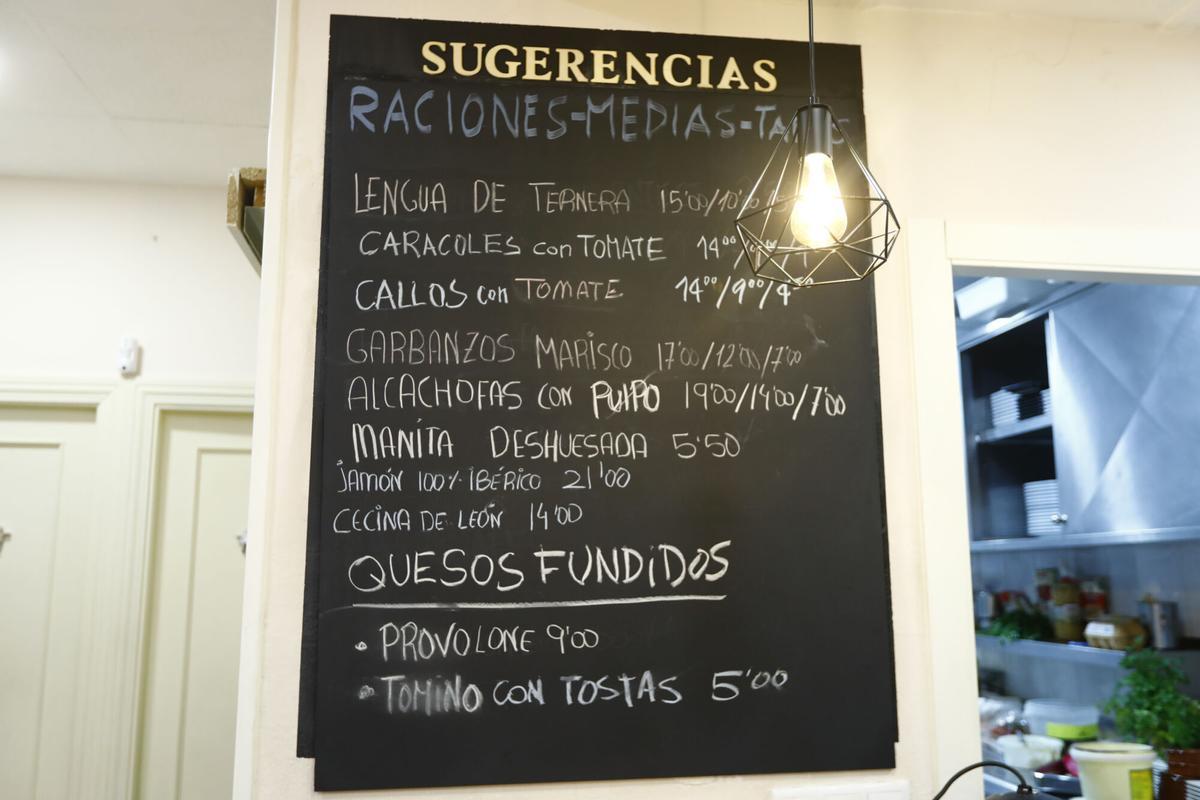 SUGERENCIAS
RACIONES-MEDIAS-
LENGUA DE TERNERA 15'00/
CARACOLES con TOMATE 14⁰⁰/
CALLOS con TOMATE 14⁰⁰/9⁰⁰/
GARBANZOS MARISCO 17'00/12'00/7'00
ALCACHOFAS CON PULPO 19'00/14'00/7'00
MANITA DESHUESADA 5'50
JAMÓN 100% IBÉRICO 21'00
CECINA DE LEÓN 14'00
QUESOS FUNDIDOS
• PROVOLONE 9'00
• TOMINO CON TOSTAS 5'00